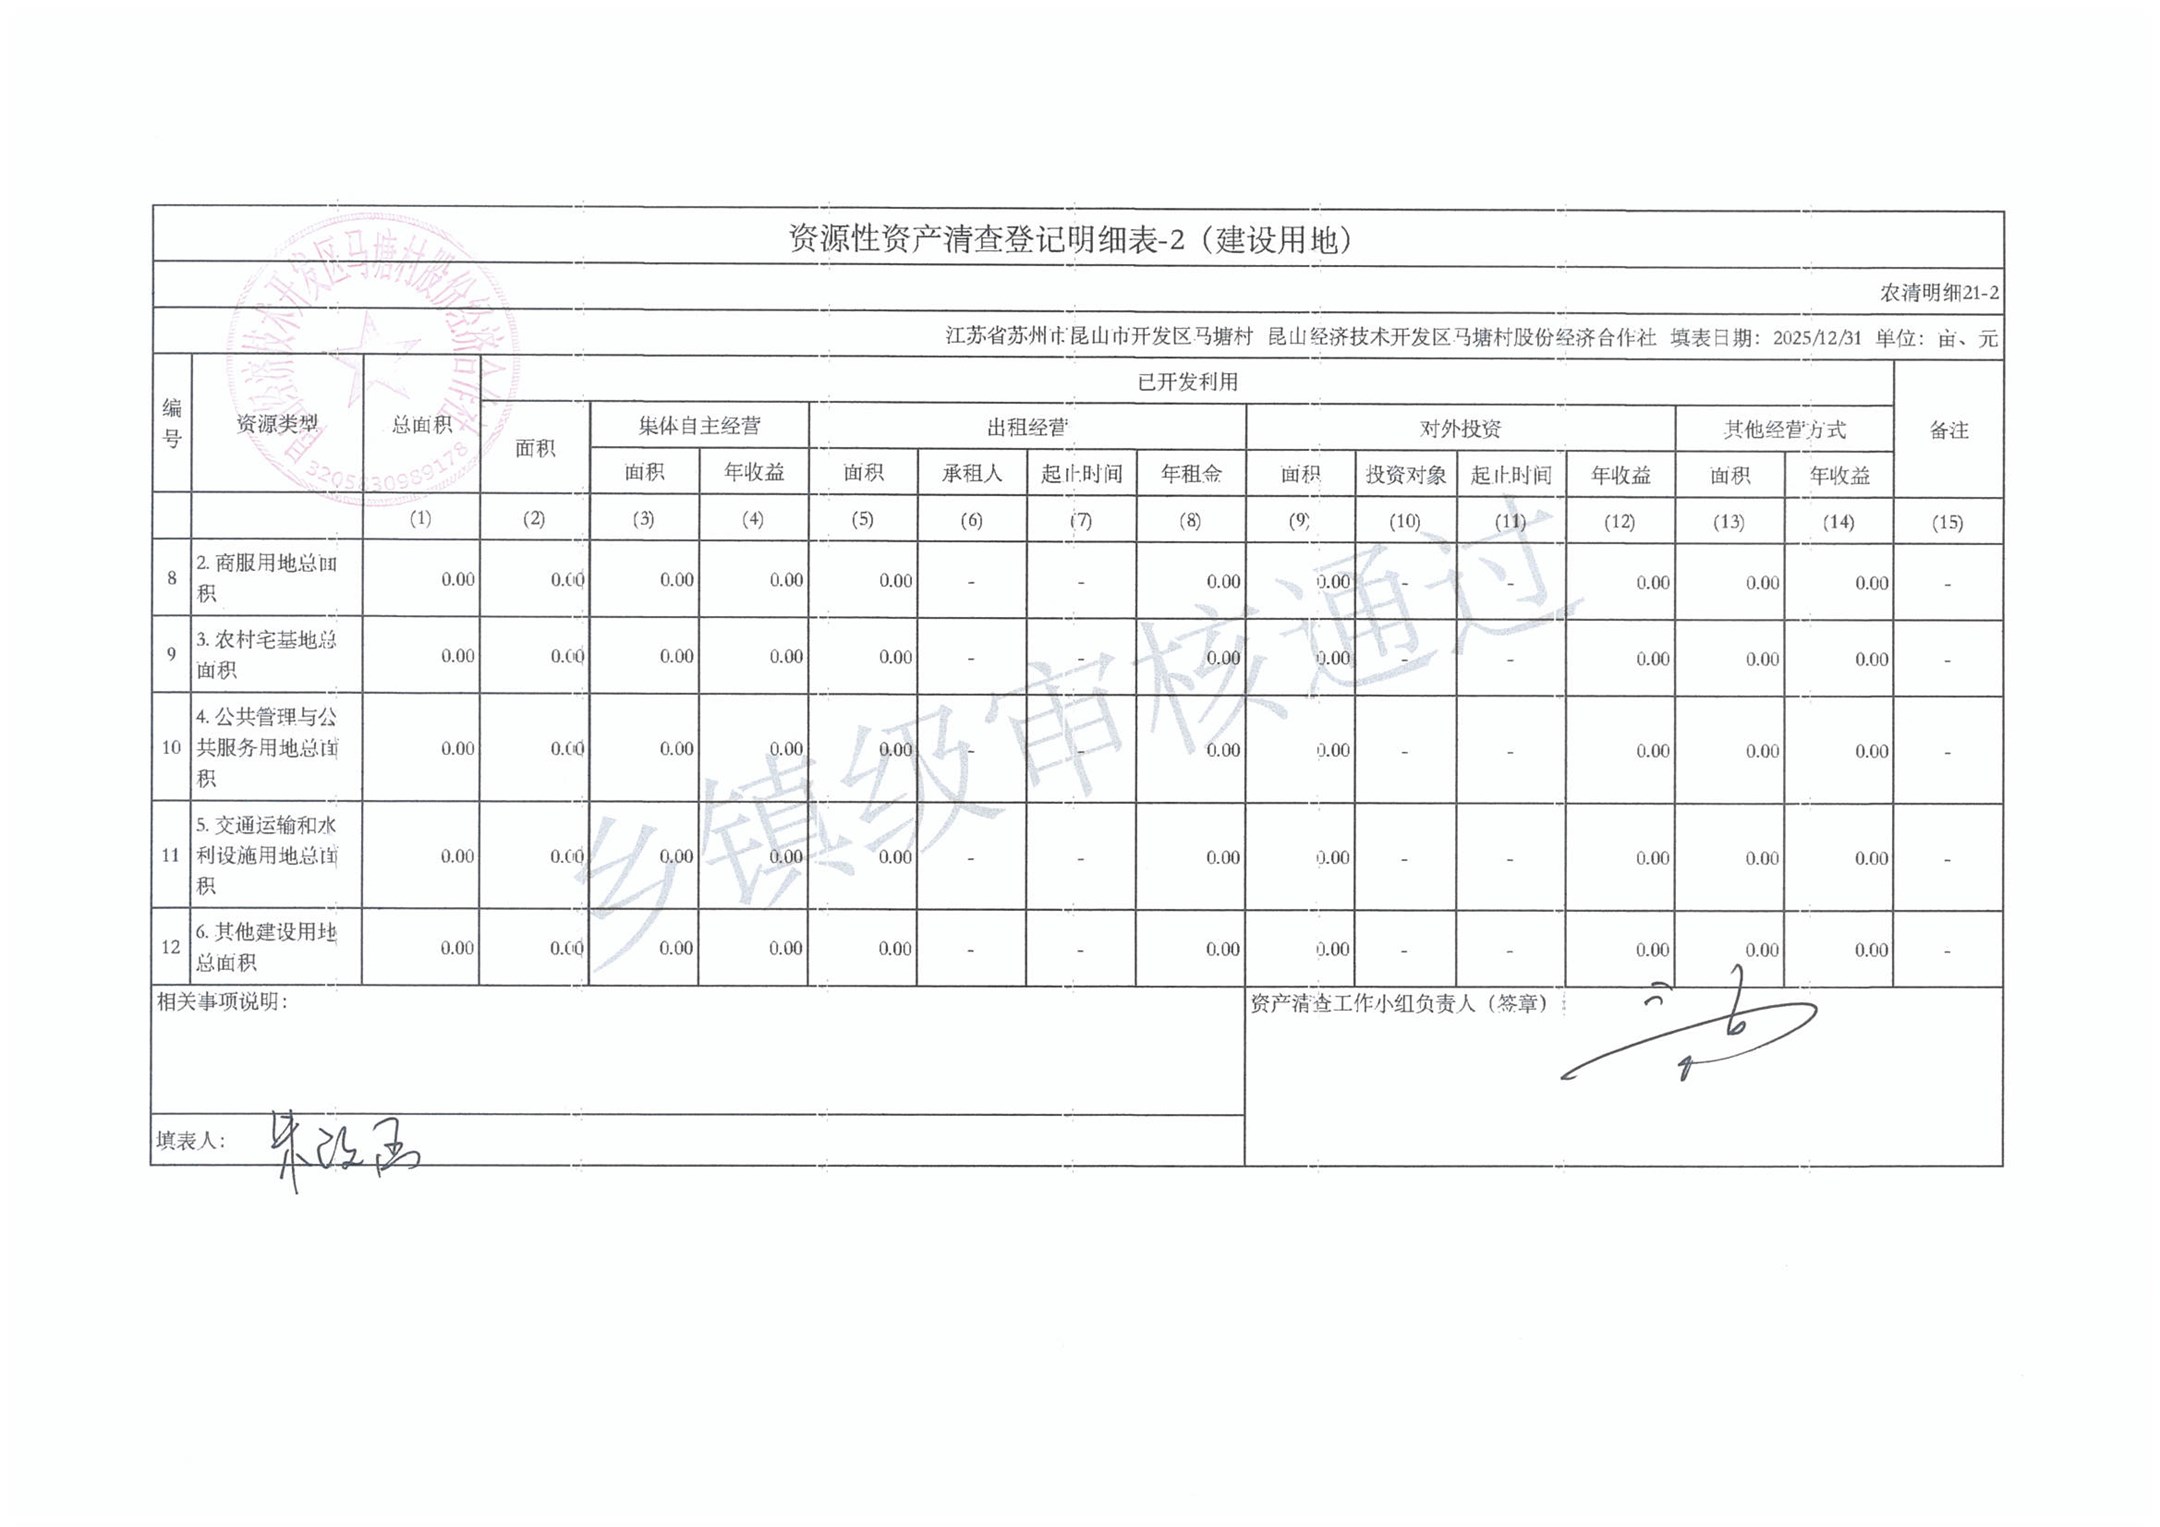 资源性资产清查登记明细表-2（建设用地）
农清明细21-2
江苏省苏州市昆山市开发区马塘村 昆山经济技术开发区马塘村股份经济合作社 填表日期：2025/12/31 单位：亩、元
编号 资源类型 总面积 已开发利用 备注
面积 集体自主经营 出租经营 对外投资 其他经营方式
面积 年收益 面积 承租人 起止时间 年租金 面积 投资对象 起止时间 年收益 面积 年收益
(1) (2) (3) (4) (5) (6) (7) (8) (9) (10) (11) (12) (13) (14) (15)
8 2. 商服用地总面积 0.00 0.00 0.00 0.00 0.00 - - 0.00 0.00 - - 0.00 0.00 0.00 -
9 3. 农村宅基地总面积 0.00 0.00 0.00 0.00 0.00 - - 0.00 0.00 - - 0.00 0.00 0.00 -
10 4. 公共管理与公共服务用地总面积 0.00 0.00 0.00 0.00 0.00 - - 0.00 0.00 - - 0.00 0.00 0.00 -
11 5. 交通运输和水利设施用地总面积 0.00 0.00 0.00 0.00 0.00 - - 0.00 0.00 - - 0.00 0.00 0.00 -
12 6. 其他建设用地总面积 0.00 0.00 0.00 0.00 0.00 - - 0.00 0.00 - - 0.00 0.00 0.00 -
相关事项说明：
资产清查工作小组负责人（签章）：
填表人：
乡镇级审核通过
昆山经济技术开发区马塘村股份经济合作社
3205830989178